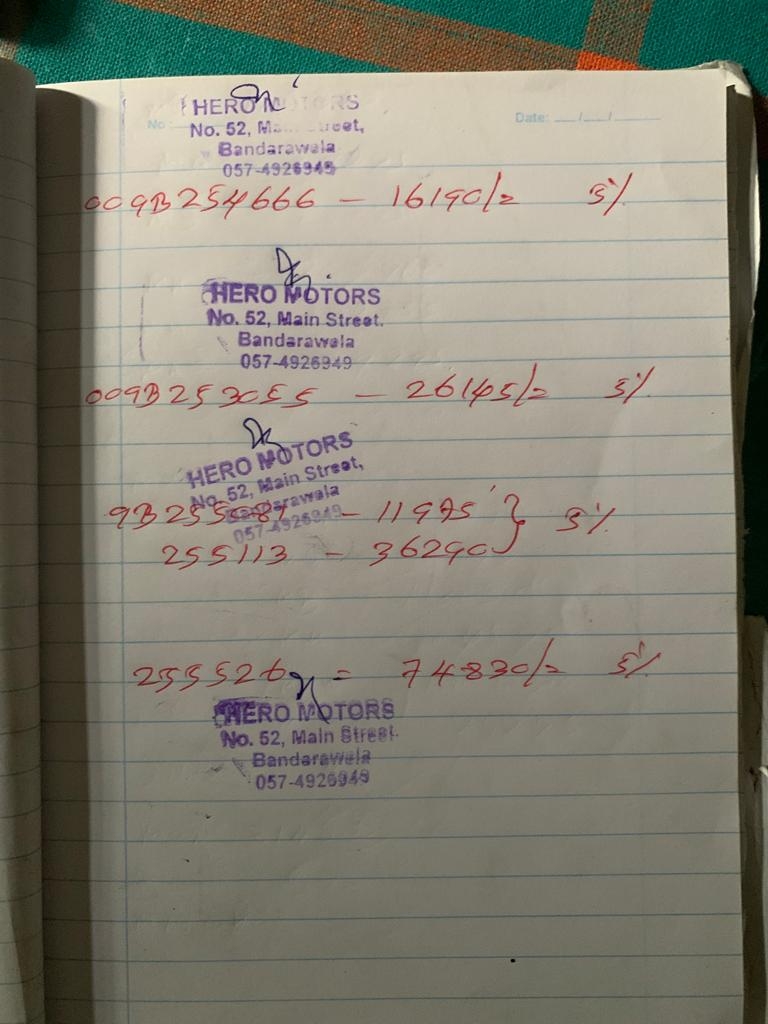 HERO MOTORS
No:
Date: __/__/__
No. 52, Main Street,
Bandarawala
057-4926949
009B254666 - 16190/= 5%
HERO MOTORS
No. 52, Main Street.
Bandarawala
057-4926949
009B253055 - 26145/= 5%
HERO MOTORS
No. 52, Main Street,
Bandarawala
057-4926949
- 11975
255113 - 36290 } 5%
255526 = 74830/= 5%
HERO MOTORS
No. 52, Main Street.
Bandarawela
057-4926949